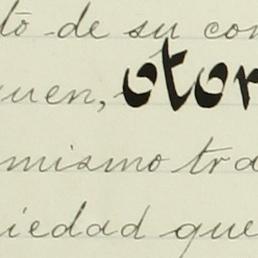 to de su con
uen, otor
mismo tra
iedad que